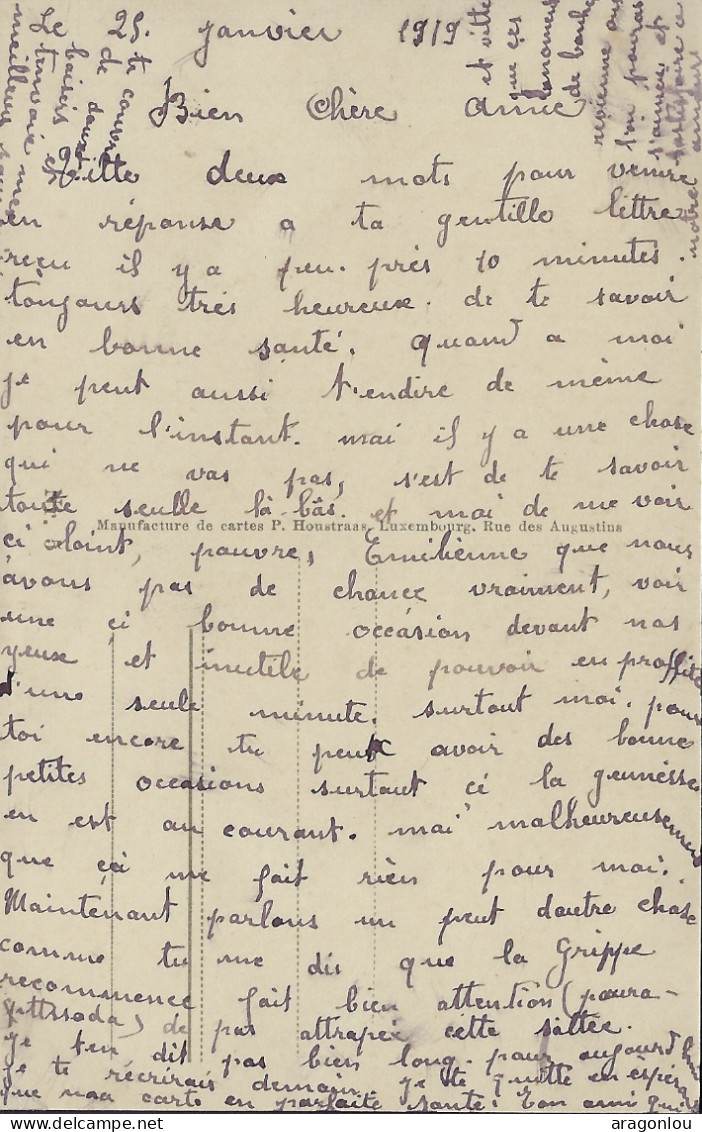 Le 25. janvier 1919
Bien Chère Amie
Vitte deux mots pour venire
en réponse a ta gentille lettre
reçu il y a peu. près 10 minutes.
toujours très heureux. de te savoir
en bonne santé. quand a moi
je peut aussi t'endire de même
pour l'instant. mai il y a une chose
qui ne vas pas, s'est de te savoir
toute seulle là-bâs. et moi de me voir
Manufacture de cartes P. Houstraas, Luxembourg, Rue des Augustins
ci loint, pauvre, Emilienne que nous
avons pas de chance vraiment, voir
une çi bonne occâsion devant nos
yeux et inutile de pouvoir en proffite
d'une seule minute. surtout moi. pour
toi encore tu peut avoir des bonne
petites occasions surtout cé la jeunesse
en est au courant. mai malheureusement
que çà me fait rien pour moi.
Maintenant parlons un peut dautre chose
comme tu me dis que la Grippe
recommence fait bien attention (poura-
) de pas attrapée cette
je ten dit pas bien long. pour aujourd'hui
je te récrirais demain je te quitte en espér
que maa carte en parfaite santé. Ton ami qui
te couvre
de doux
baisers et
t'envoie mes
meilleurs
et vitte
que ces
de
revienne
l'on pouras
s'aimer et
satisfaire a
notre amour
aragonlou